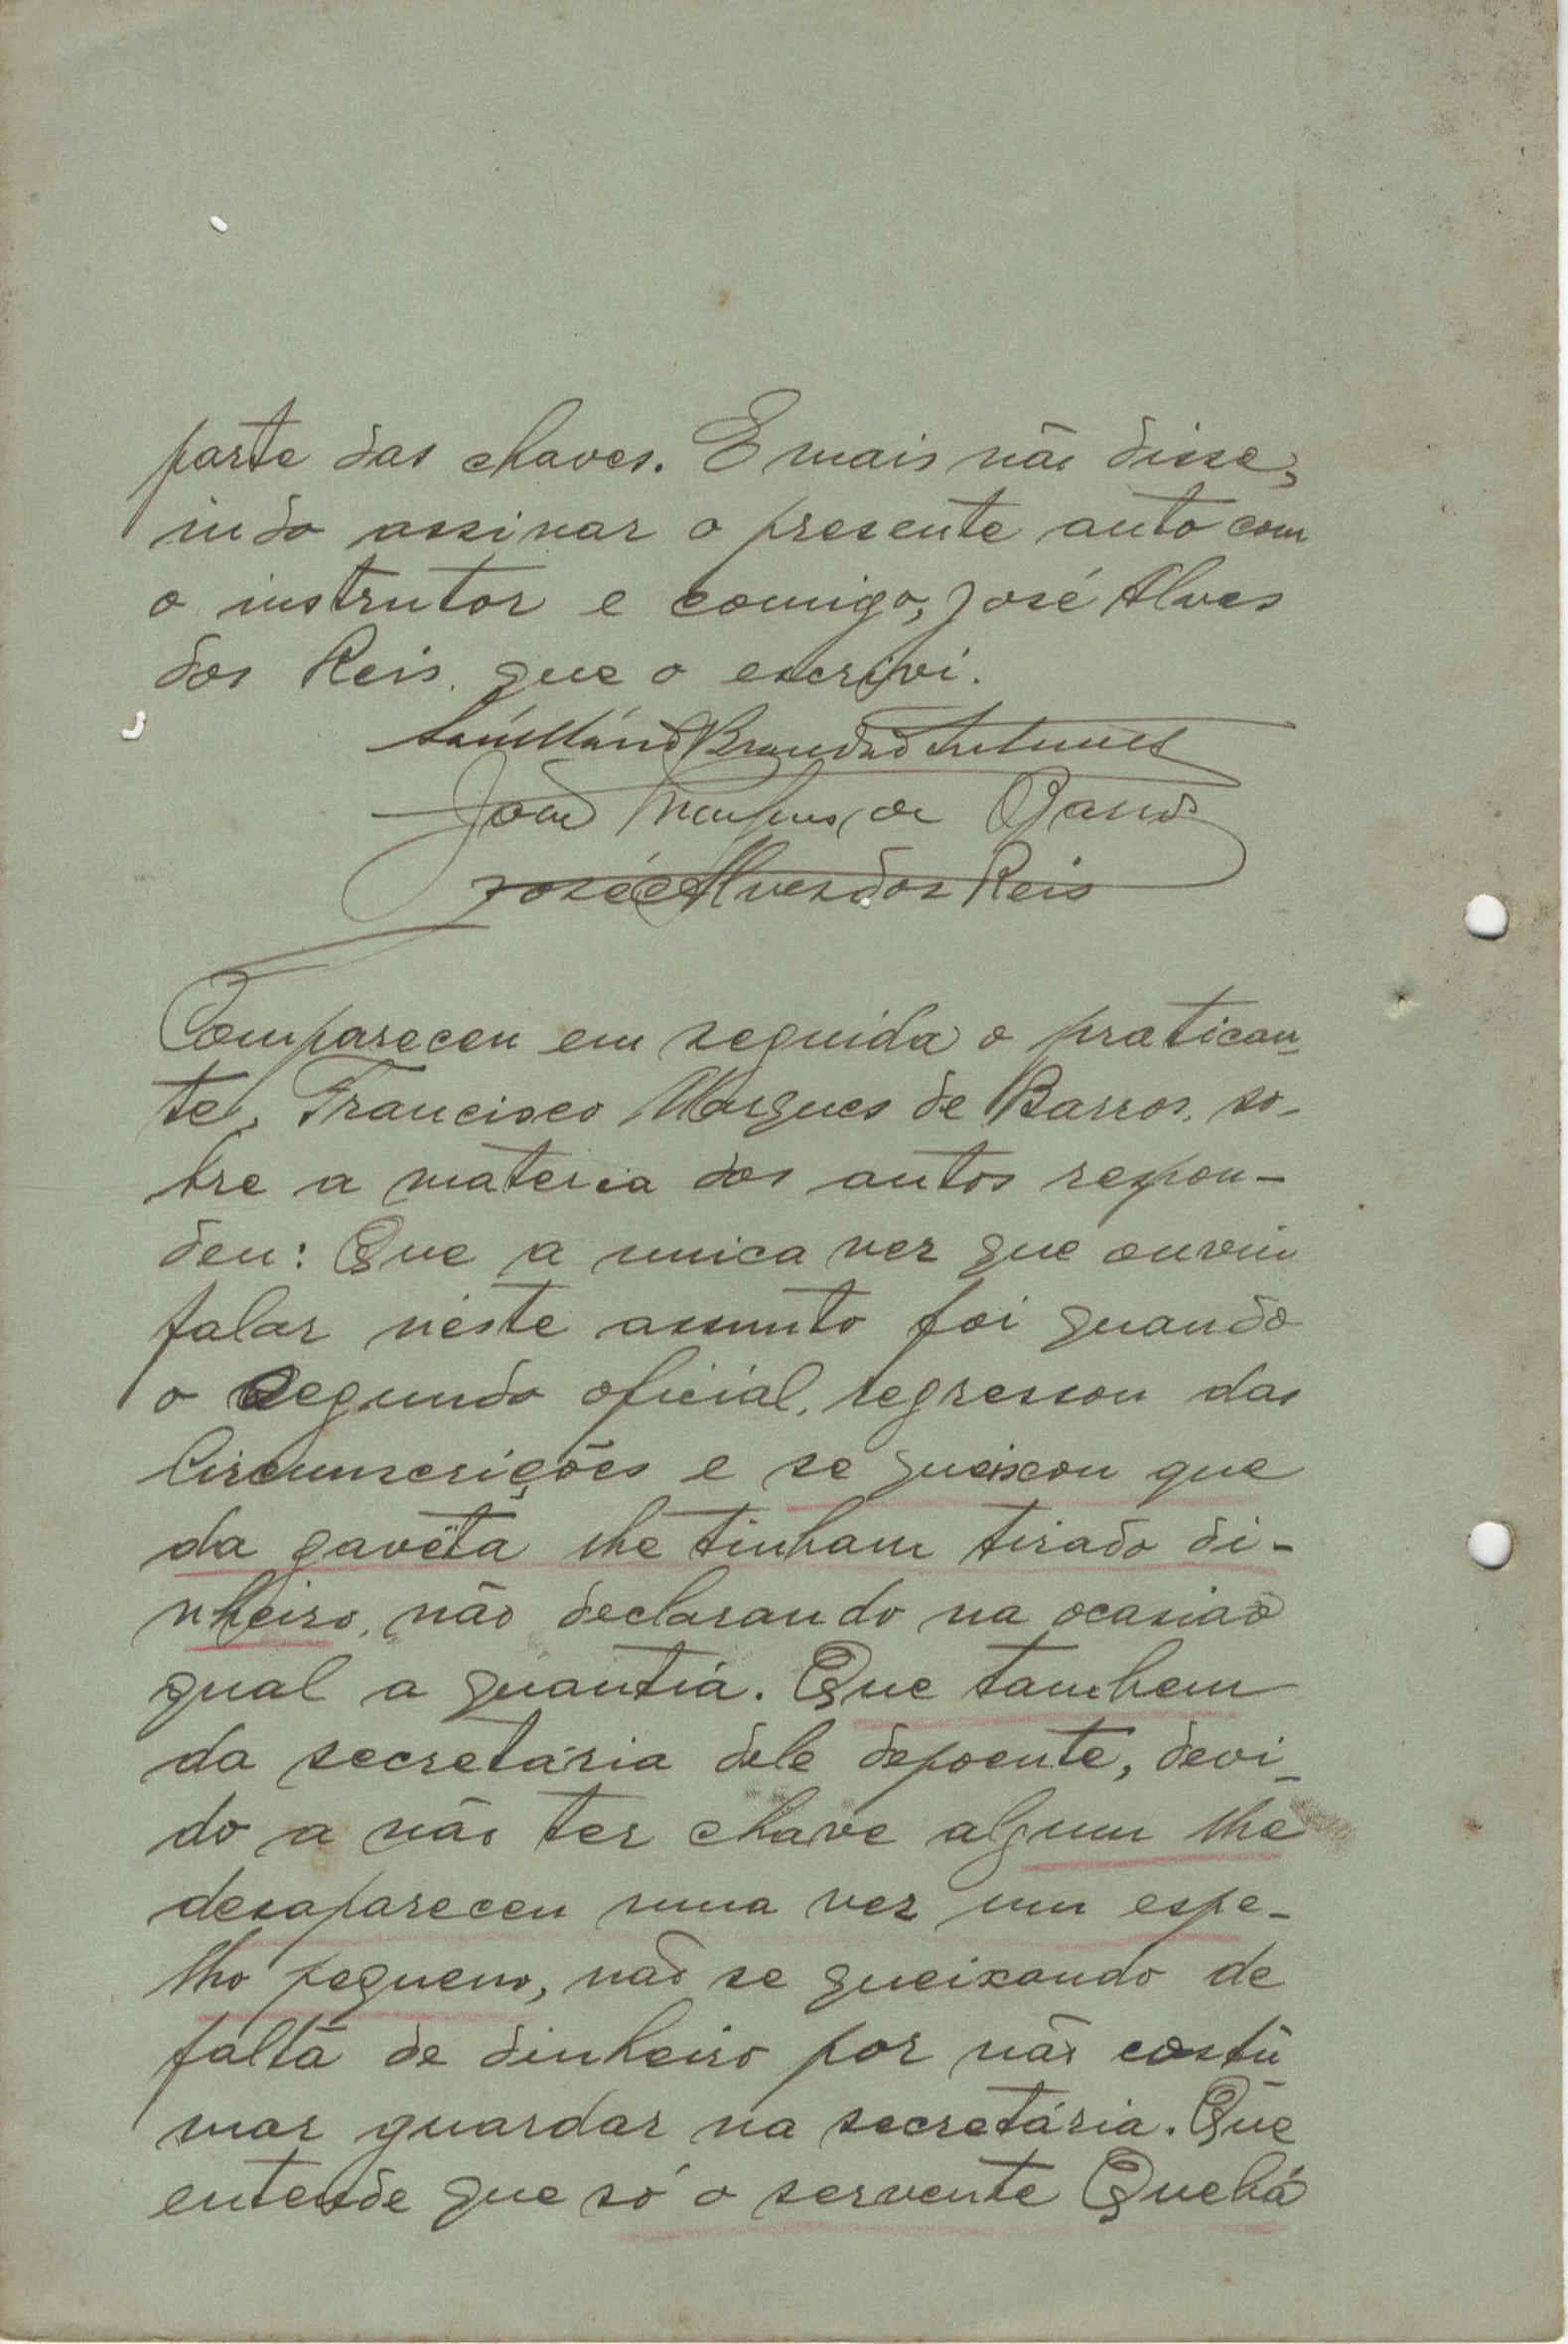 parte das chaves. E mais não disse,
indo assinar o presente auto com
o instrutor e comigo, José Alves
dos Reis, que o escrivi.
Brandão Antunes
João Marques de Barros
José Alves dos Reis
Compareceu em seguida o pratican-
te, Francisco Marques de Barros, so-
bre a materia dos autos respon-
deu: Que a unica vez que ouviu
falar néste assunto foi quando
o segundo oficial, regressou das
Circumscrições e se queixou que
da gavêta lhe tinham tirado di-
nheiro, não declarando na ocasião
qual a quantia. Que tambem
da secretária dele depoente, devi-
do a não ter chave algum lhe
desapareceu uma vez um espe-
lho pequeno, não se queixando de
falta de dinheiro por não costu
mar guardar na secretária. Que
entende que só o servente Quebá